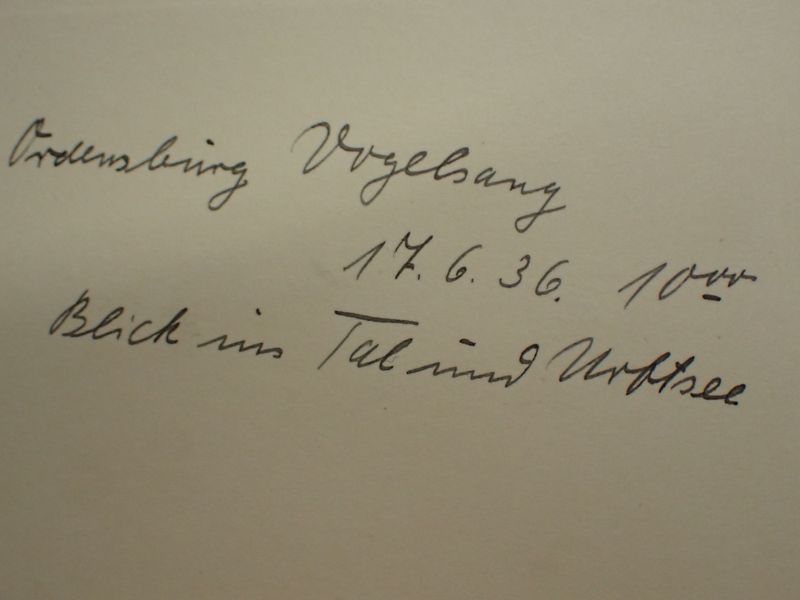 Ordensburg Vogelsang
17.6.36. 10ºº
Blick ins Tal und Urftsee